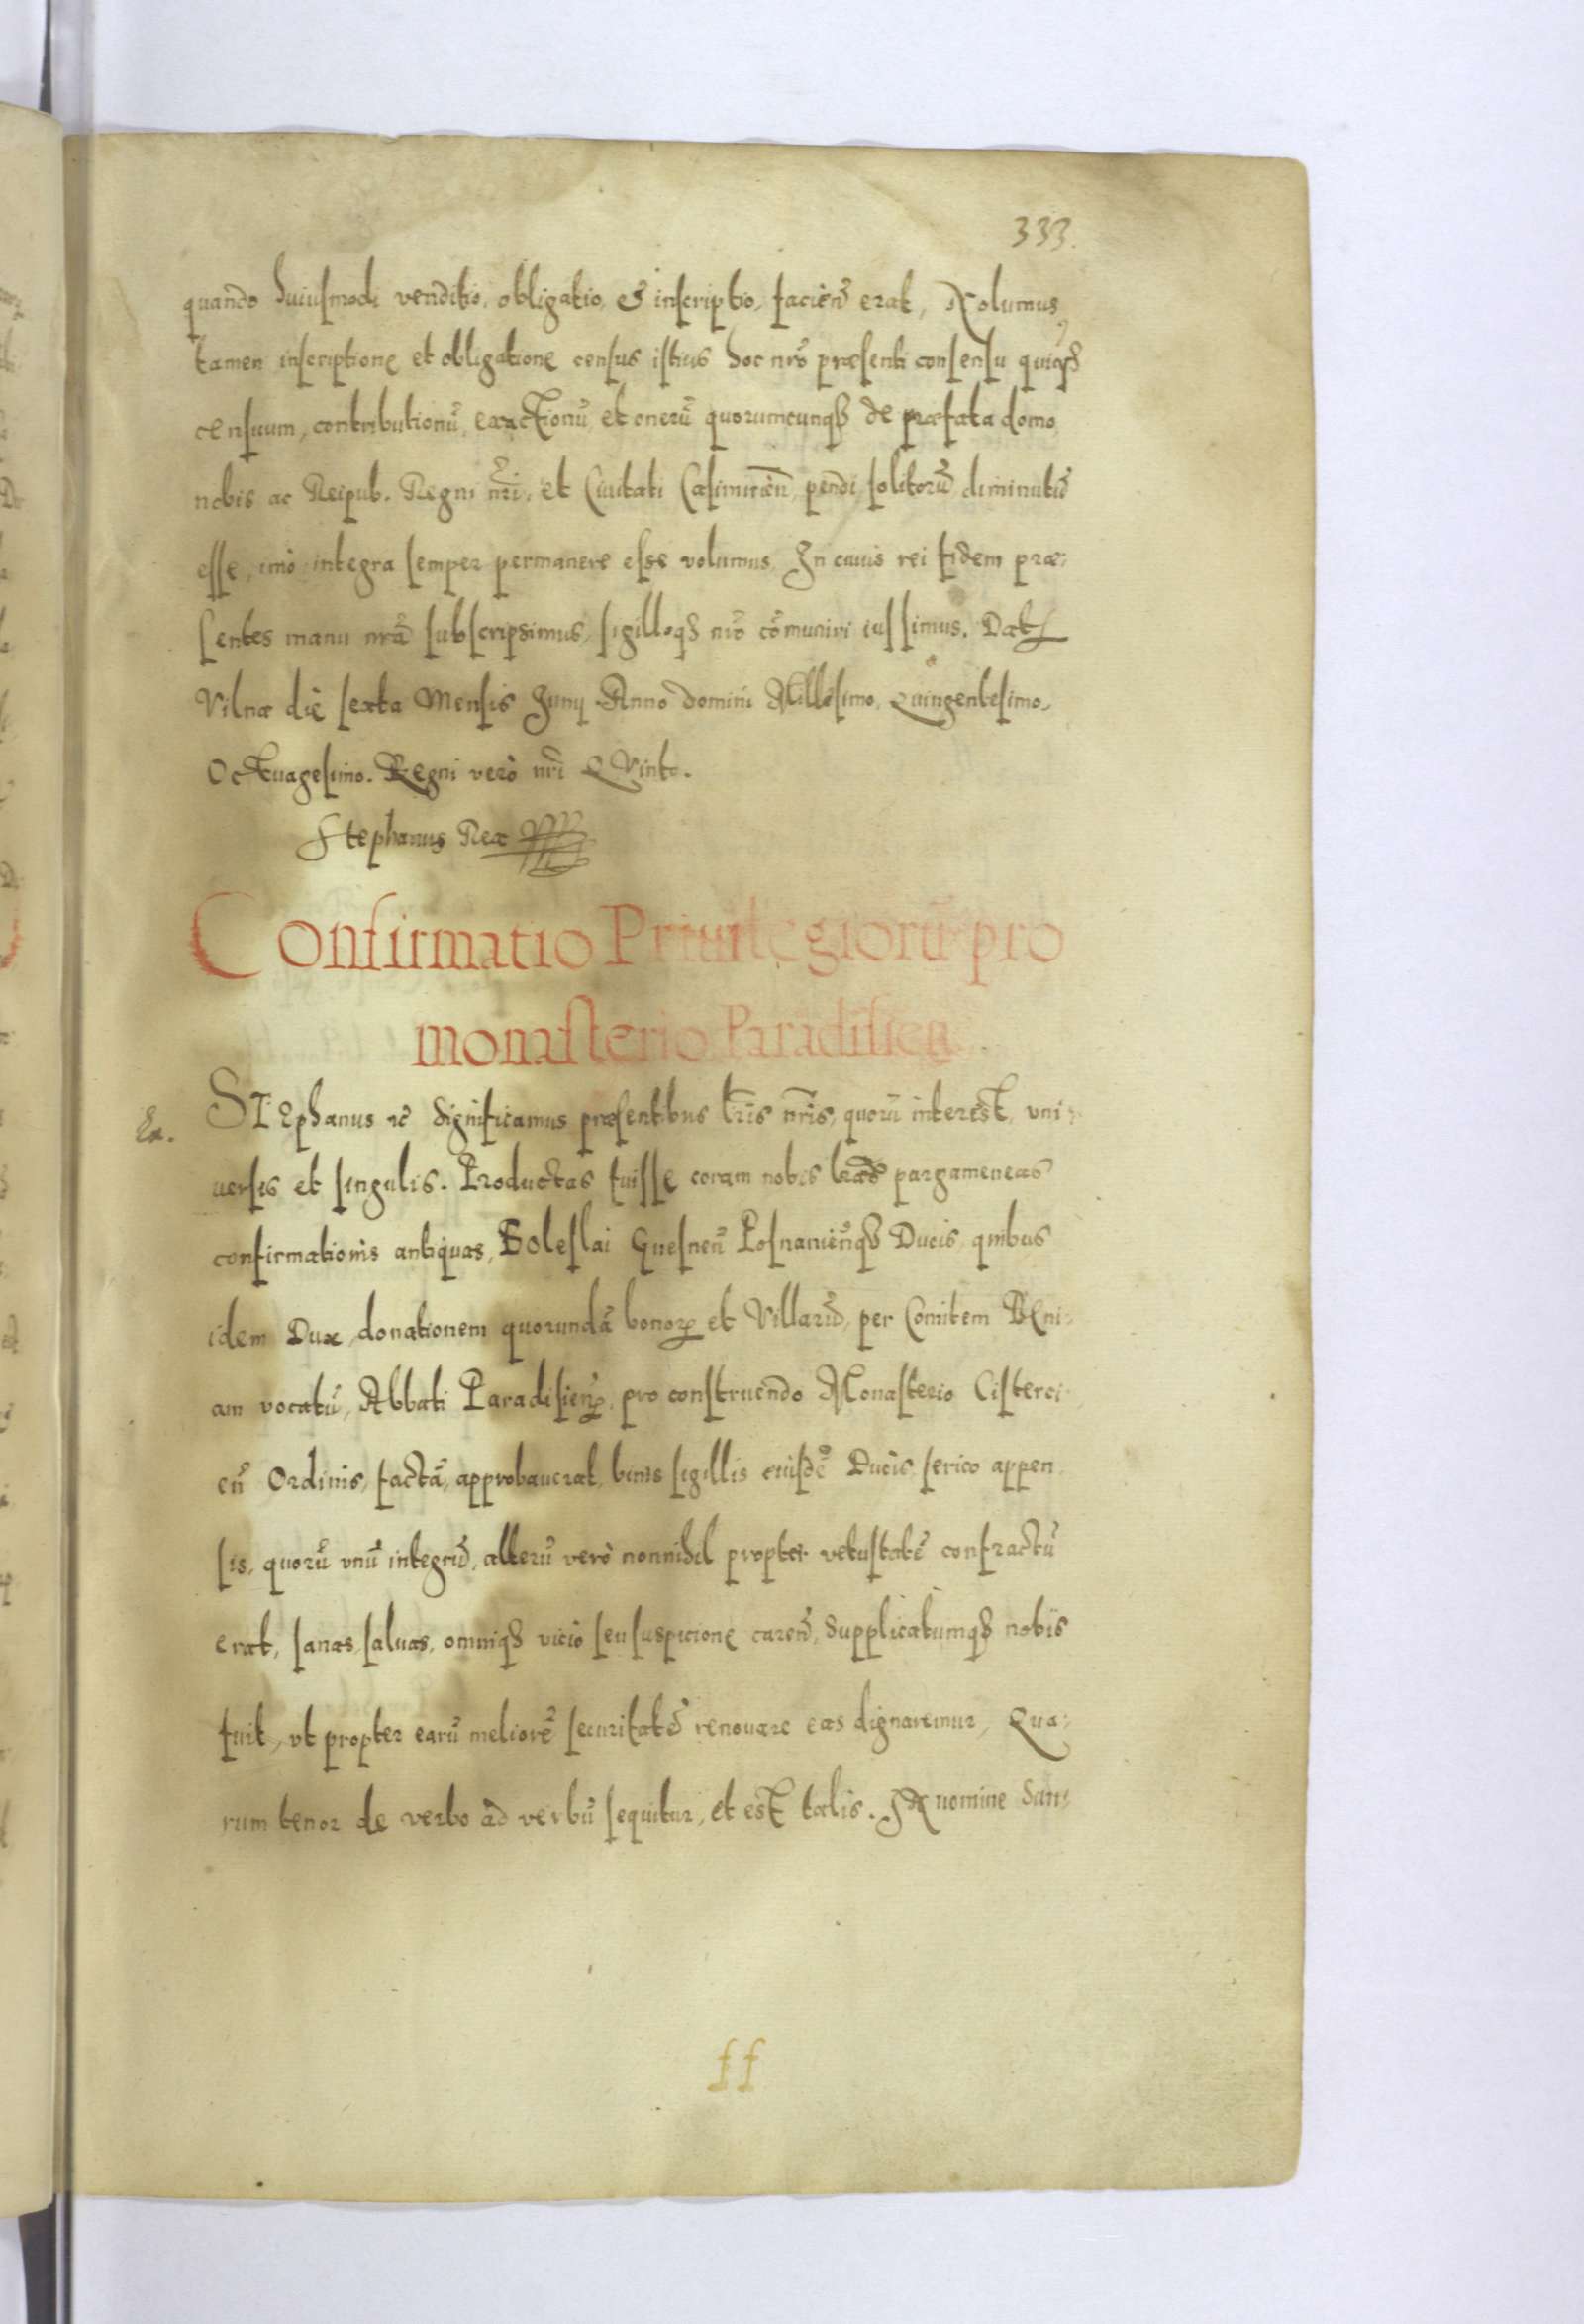 333.
quando huiusmodi venditio, obligatio, & inscriptio, faciēn̄ erat, Nolumus
tamen inscriptione et obligatione census istius hoc nrō præsenti consensu quicq̄
censuum, contributionū, exactionū, et onerū quorumcunqȝ de præfata domo
nobis ac Reipub. Regni nrī, et Ciuitati Casimirien̄, pendi solitorū diminutū
esse, imò integra semper permanere esse volumus. In cuius rei fidem præ:
sentes manu nrā subscripsimus, sigilloqȝ nrō cōmuniri iussimus. Dat
Vilnæ die sexta Mensis Junij Anno Domini Millesimo, Quingentesimo,
Octuagesimo. Regni verò nrī Quinto.
Stephanus Rex
Confirmatio Priuilegiorū pro
monasterio Paradisien̄
Ex.
STEphanus ꝛc̄ Significamus præsentibus lrīs nrīs, quorū interest, vni:
uersis et singulis. Productas fuisse coram nobis lrās pargameneas
confirmationis antiquas, Boleslai Gnesnen̄ Posnanien̄qȝ Ducis, quibus
idem Dux, donationem quorundā bonoꝝ et Villarū, per Comitem Beni:
am vocatū, Abbati Paradisien̄, pro construendo Monasterio Cisterci
en̄ Ordinis, factā, approbauerat, binis sigillis eiusdē Ducis, serico appen
sis, quorū vnū integrū, alterū verò nonnihil propter vetustatē confractū
erat, sanas, saluas, omniqȝ vicio seu suspicione caren̄, Supplicatumqȝ nobis
fuit, vt propter earū meliorē securitatē renouare eas dignaremur, Qua:
rum tenor de verbo ad verbū sequitur, et est talis. IN nomine San:
ff